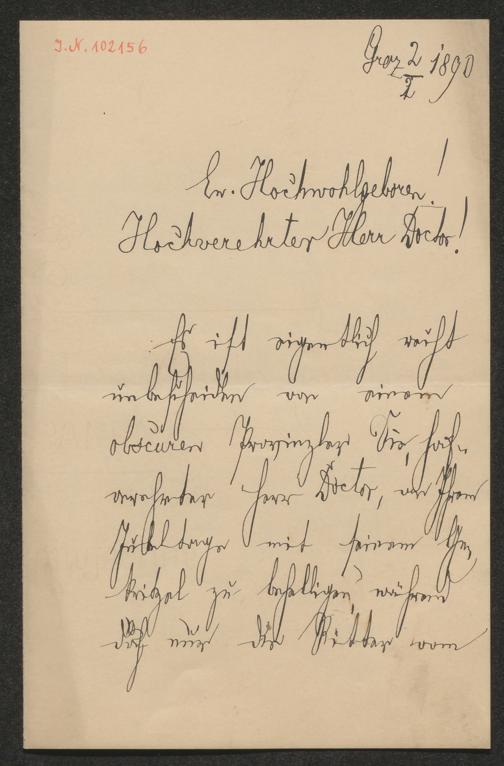 J.N. 102156
Graz 2/2 1890
Ew. Hochwohlgeboren!
Hochverehrter Herr Doctor!
Es ist eigentlich recht
unbescheiden von einem
obscuren Provinzler Sie, hoch-
verehrter Herr Doctor, an Ihrem
Jubeltage mit seinem Ge-
kritzel zu behelligen, während
doch nur die Ritter vom